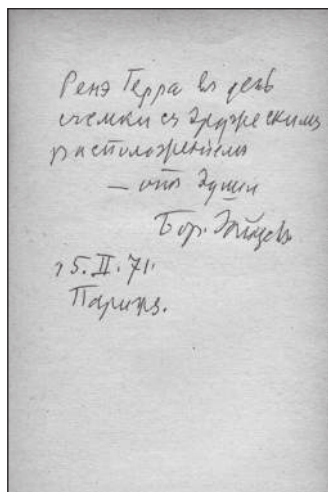 Ренэ Герра въ день
съемки съ дружескимъ
расположенiемъ
— отъ души
Бор. Зайцевъ
25.II.71.
Парижъ.